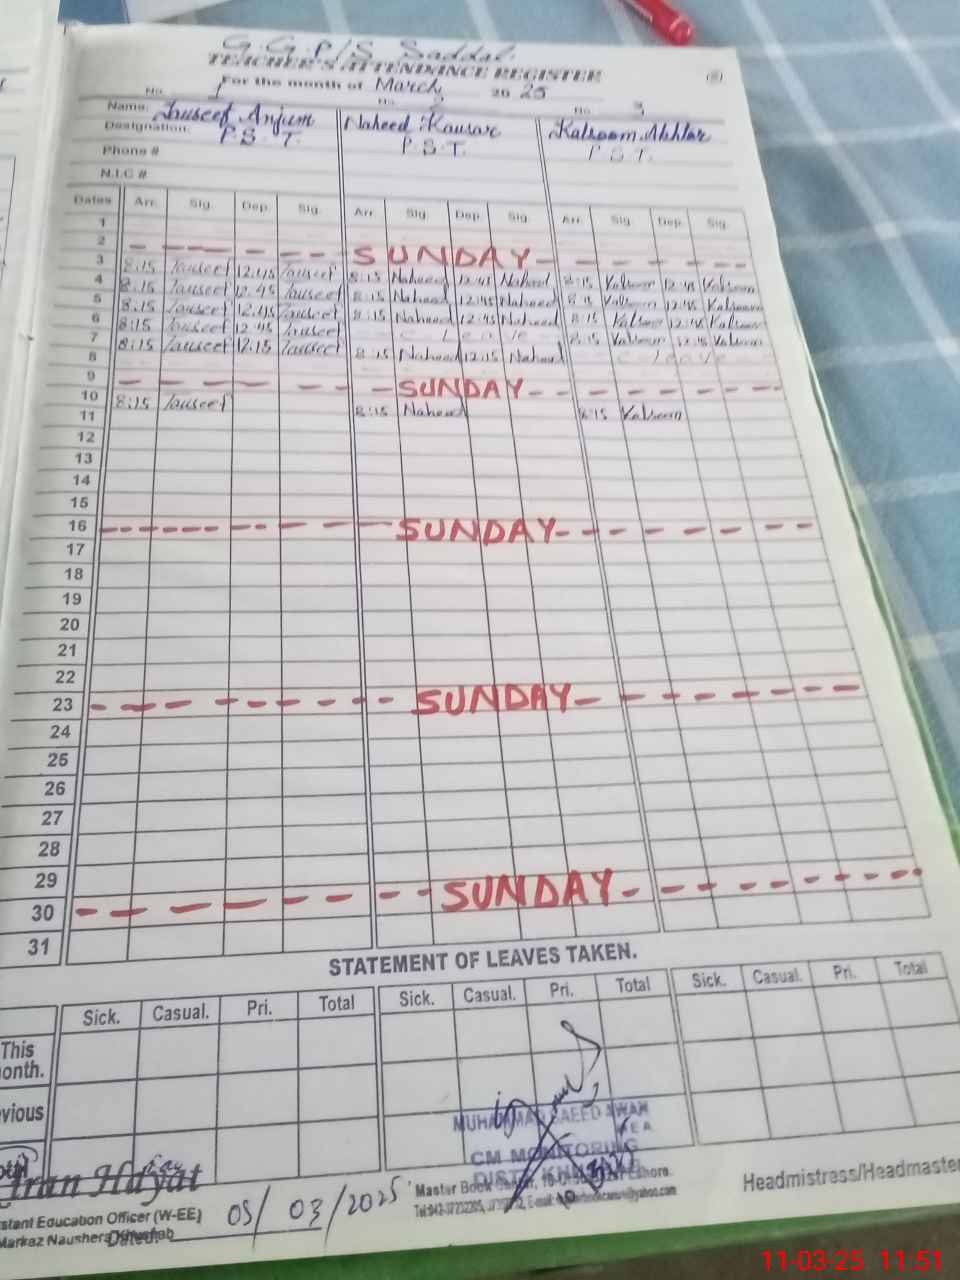 G.G.P/S Saddal.
TEACHER'S ATTENDANCE REGISTER
For the month of March 2025
No. 1 No. 2 No. 3
Name: Tauseef Anjum Naheed Kausar Kalsoom Akhtar
Designation: P.S.T. P.S.T. P.S.T.
Phone #
N.I.C #
Dates Arr. Sig. Dep. Sig. Arr. Sig. Dep. Sig. Arr. Sig. Dep. Sig.
1
2 SUNDAY
3 8:15 Tauseef 12:45 Tauseef 8:15 Naheed 12:45 Naheed 8:15 Kalsoom 12:45 Kalsoom
4 8:15 Tauseef 12:45 Tauseef 8:15 Naheed 12:45 Naheed 8:15 Kalsoom 12:45 Kalsoom
5 8:15 Tauseef 12:45 Tauseef 8:15 Naheed 12:45 Naheed 8:15 Kalsoom 12:45 Kalsoom
6 8:15 Tauseef 12:45 Tauseef C Leave 8:15 Kalsoom 12:45 Kalsoom
7 8:15 Tauseef 12:15 Tauseef 8:15 Naheed 12:15 Naheed C Leave
8
9 SUNDAY
10 8:15 Tauseef 8:15 Naheed 8:15 Kalsoom
11
12
13
14
15
16 SUNDAY
17
18
19
20
21
22
23 SUNDAY
24
25
26
27
28
29
30 SUNDAY
31
STATEMENT OF LEAVES TAKEN.
Sick. Casual. Pri. Total Sick. Casual. Pri. Total Sick. Casual. Pri. Total
This
onth.
vious
MUHAMMAD SAEED AWAN
MEA
CM MONITORING
DISTT KHUSHAB
Hayat
stant Education Officer (W-EE)
Markaz Naushera Khushab
Dated: 05/03/2025
Master Book
Lahore.
Headmistress/Headmaster
11-03-25 11:51